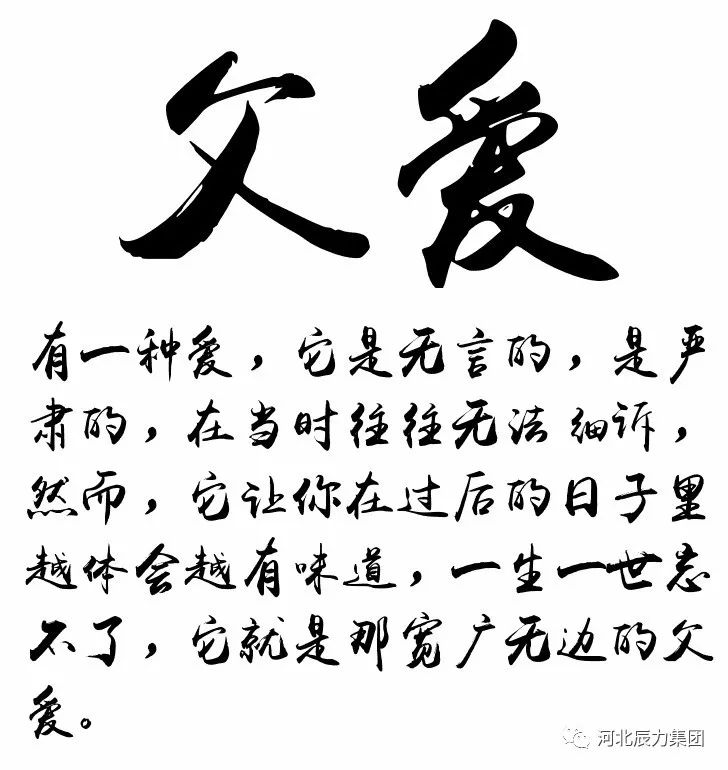 父爱
有一种爱，它是无言的，是严
肃的，在当时往往无法细诉，
然而，它让你在过后的日子里
越体会越有味道，一生一世忘
不了，它就是那宽广无边的父
爱。
河北辰力集团